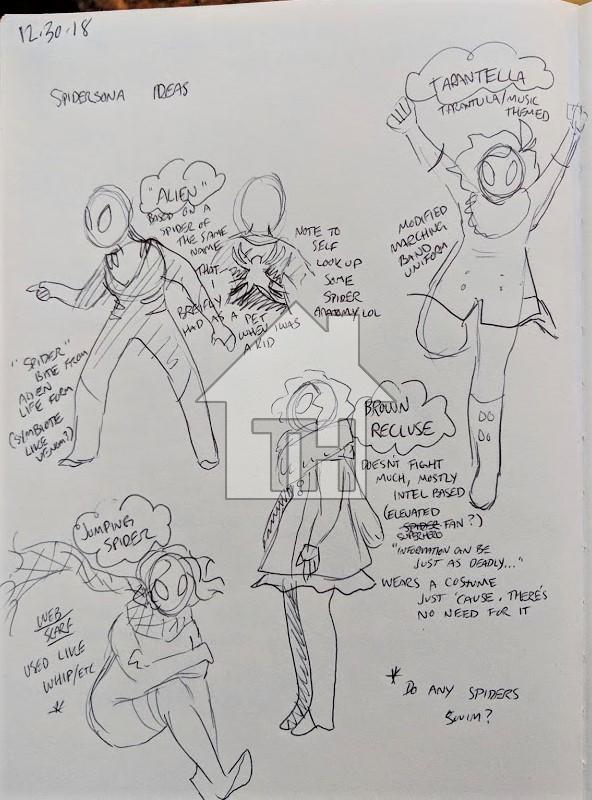 12.30.18
SPIDERSONA IDEAS
TARANTELLA
TARANTULA/MUSIC
THEMED
MODIFIED
MARCHING
BAND
UNIFORM
"ALIEN"
BASED ON A
SPIDER OF
THE SAME
NAME
THAT
I
BREIFLY
HAD AS A PET
WHEN I WAS
A KID
NOTE TO
SELF
LOOK UP
SOME
SPIDER
ANATOMY LOL
"SPIDER"
BITE FROM
ALIEN
LIFE FORM
(SYMBIOTE
LIKE
VENOM?)
BROWN
RECLUSE
DOESN'T FIGHT
MUCH, MOSTLY
INTEL BASED
(ELEVATED
SPIDER FAN?)
SUPERHERO
"INFORMATION CAN BE
JUST AS DEADLY..."
WEARS A COSTUME
JUST 'CAUSE, THERE'S
NO NEED FOR IT
JUMPING
SPIDER
WEB
SCARF
USED LIKE
WHIP/ETC
*
* DO ANY SPIDERS
SWIM?
TH